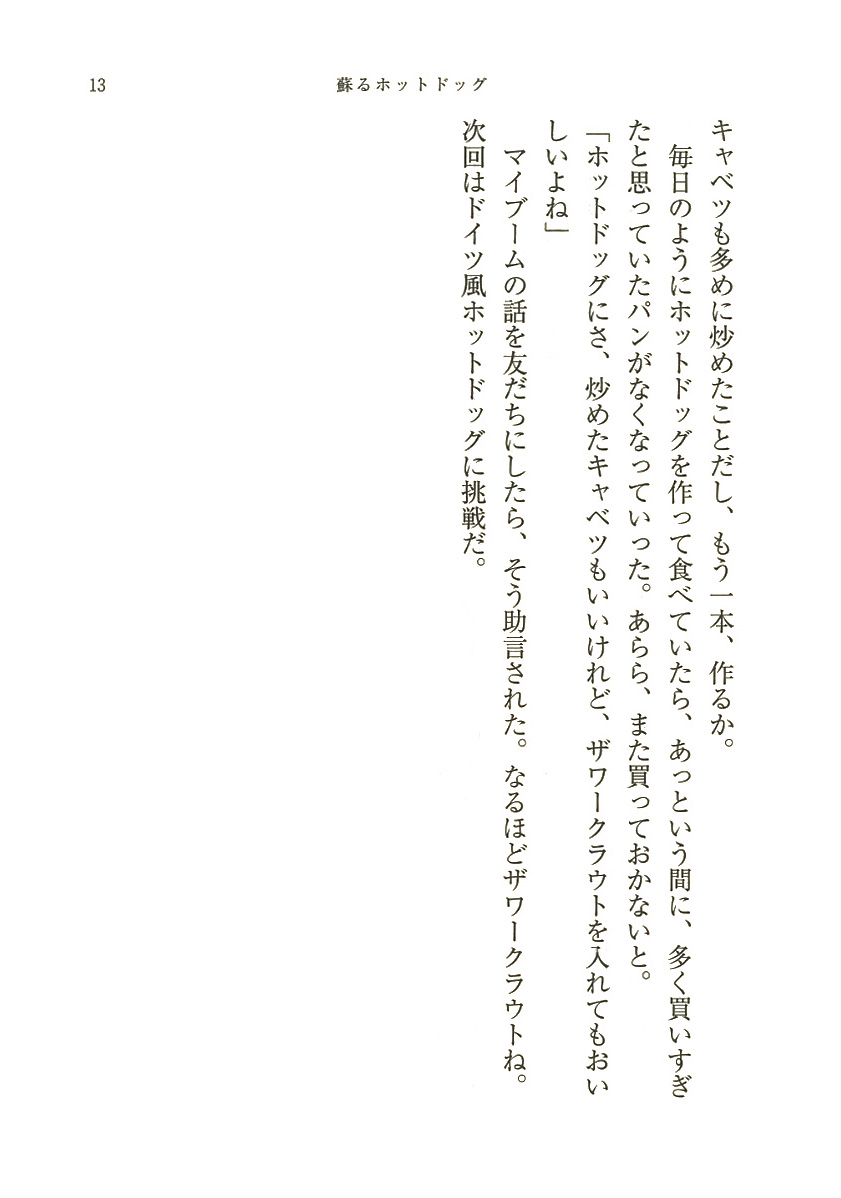 13
蘇るホットドッグ
キャベツも多めに炒めたことだし、もう一本、作るか。
毎日のようにホットドッグを作って食べていたら、あっという間に、多く買いすぎ
たと思っていたパンがなくなっていった。あらら、また買っておかないと。
「ホットドッグにさ、炒めたキャベツもいいけれど、ザワークラウトを入れてもおい
しいよね」
マイブームの話を友だちにしたら、そう助言された。なるほどザワークラウトね。
次回はドイツ風ホットドッグに挑戦だ。